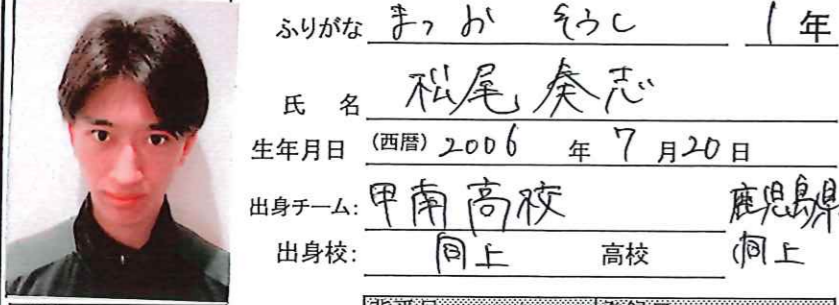 ふりがな まつお そうし 1年
氏名 松尾奏志
生年月日 (西暦) 2006 年 7 月 20 日
出身チーム: 甲南高校 鹿児島県
出身校: 同上 高校 (同上